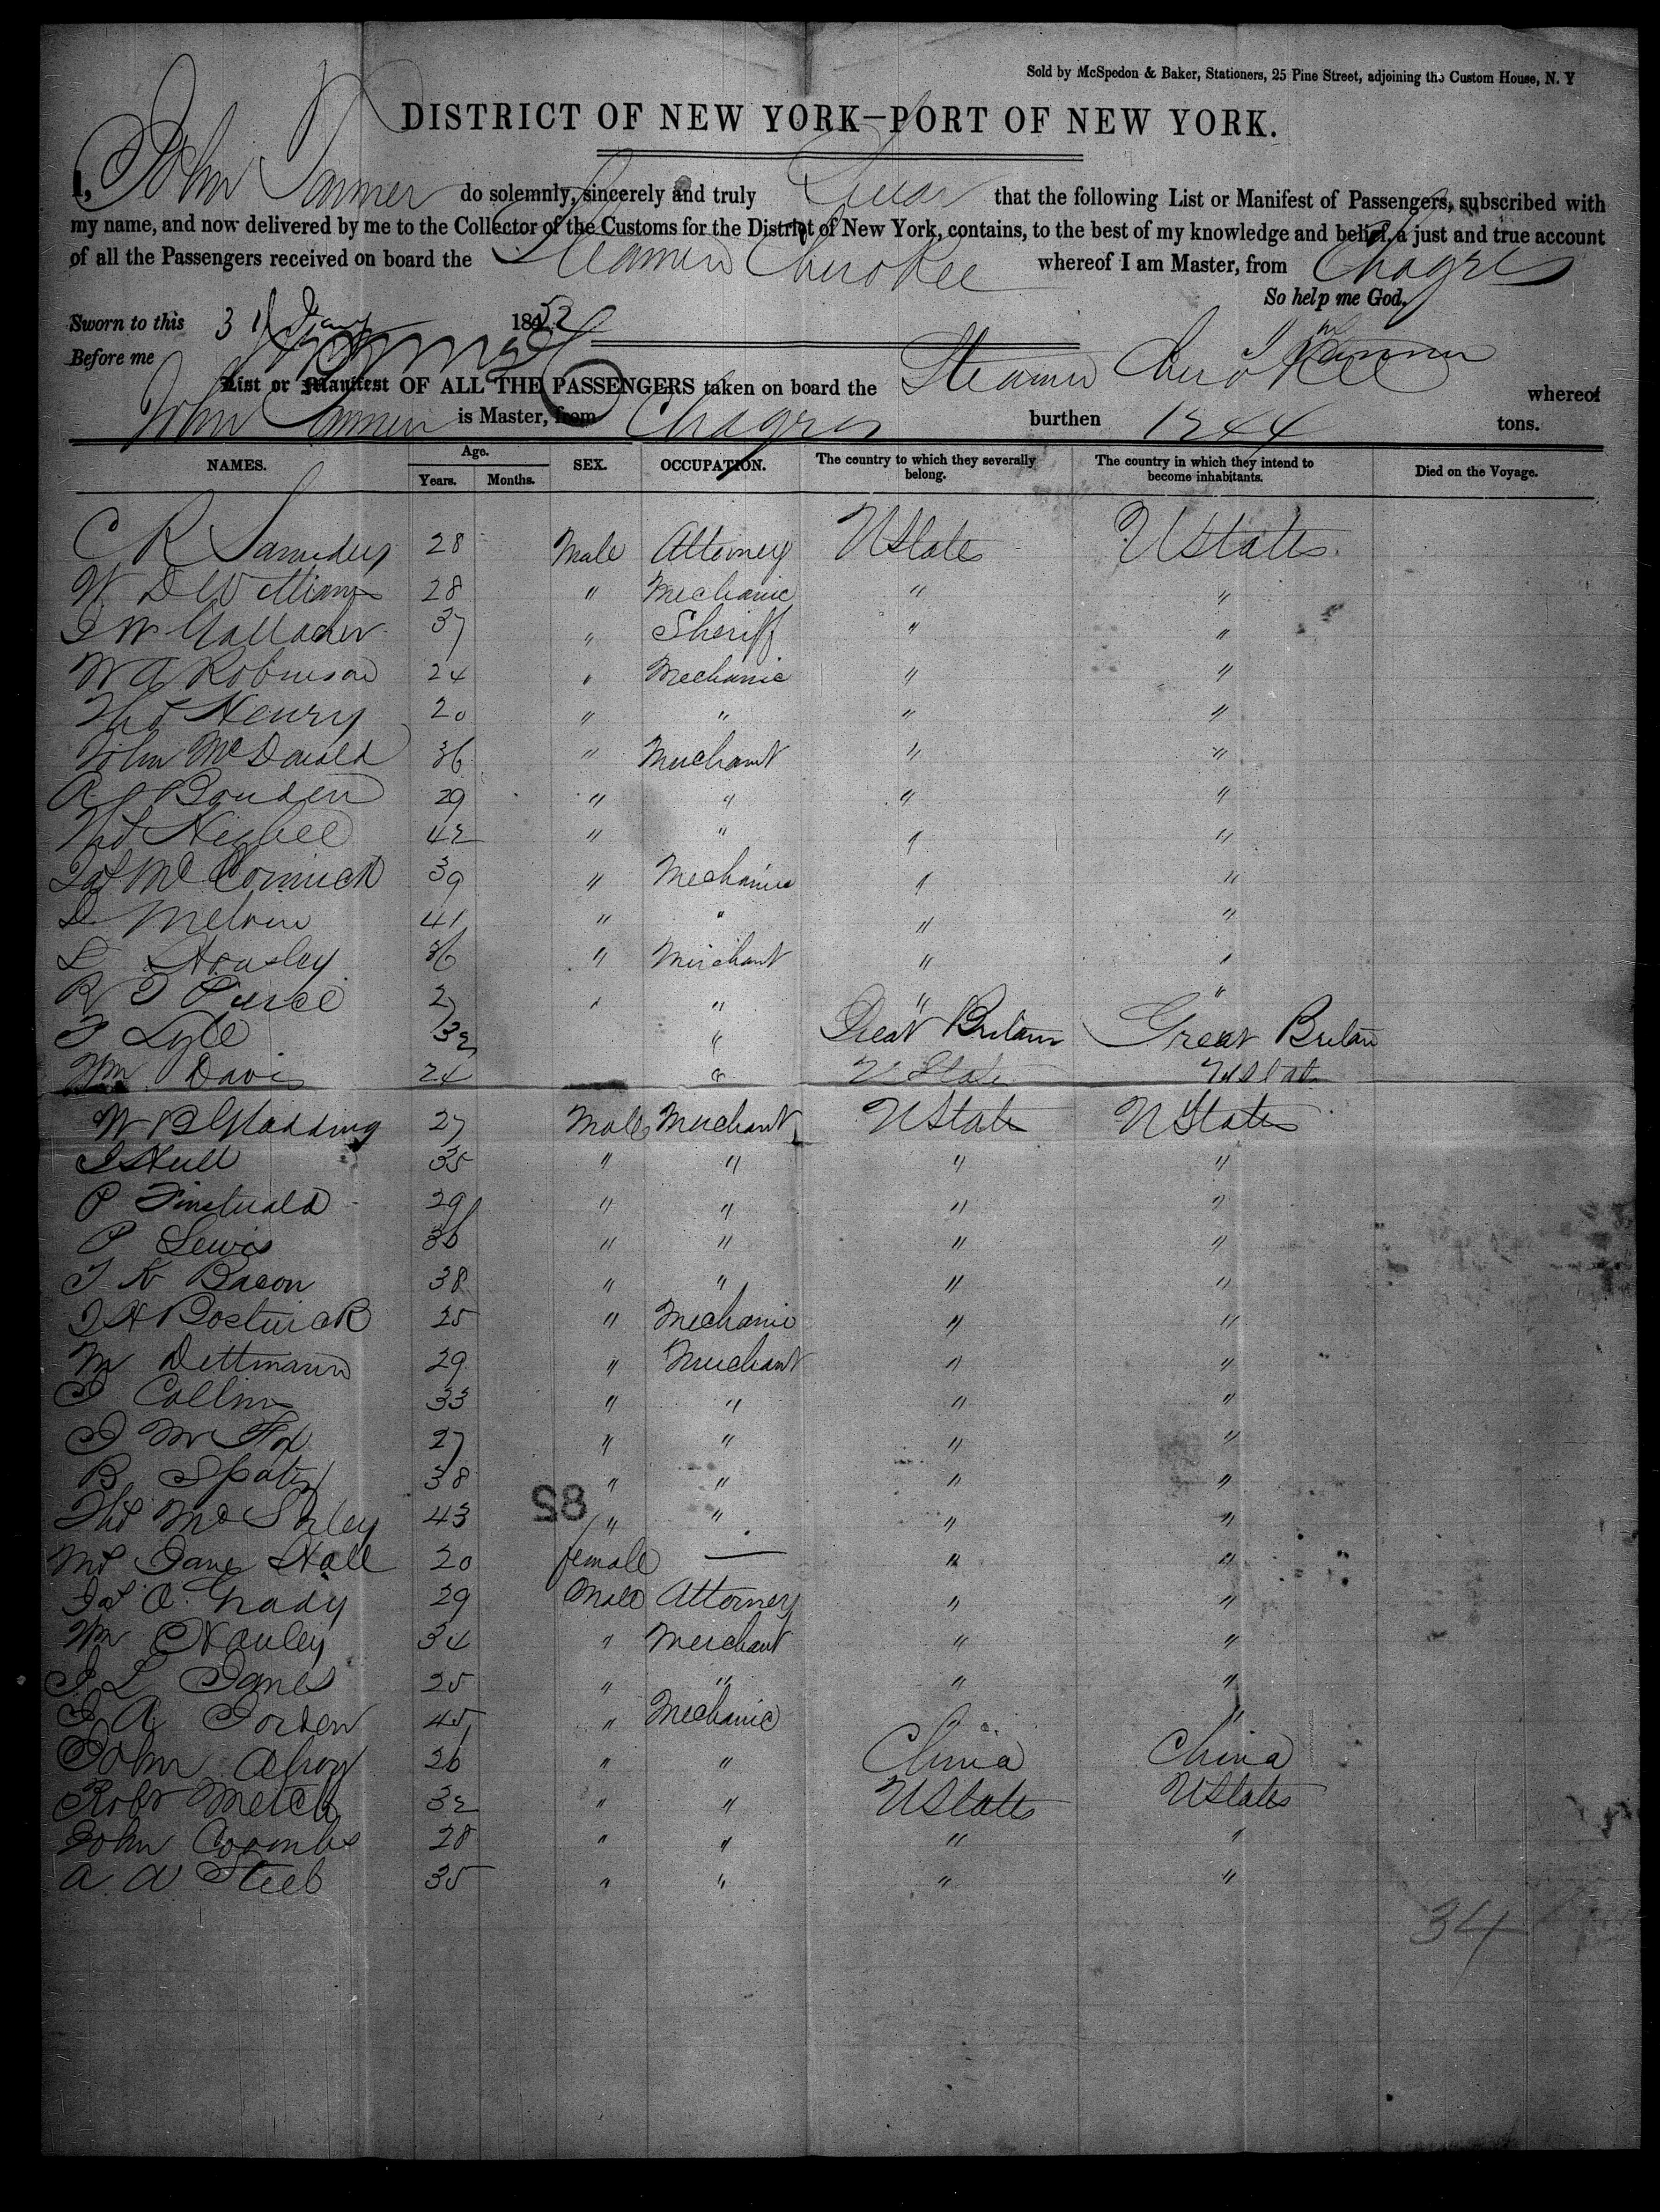 Sold by McSpedon & Baker, Stationers, 25 Pine Street, adjoining the Custom House, N. Y
DISTRICT OF NEW YORK—PORT OF NEW YORK.
I, John do solemnly, sincerely and truly Swear that the following List or Manifest of Passengers, subscribed with
my name, and now delivered by me to the Collector of the Customs for the District of New York, contains, to the best of my knowledge and belief, a just and true account
of all the Passengers received on board the Steamer Cherokee whereof I am Master, from Chagres
So help me God.
Sworn to this 31 Jany 1852
Before me
List or Manifest OF ALL THE PASSENGERS taken on board the Steamer Cherokee whereof
John is Master, from Chagres burthen 1244 tons.
NAMES. Age. Years. Months. SEX. OCCUPATION. The country to which they severally belong. The country in which they intend to become inhabitants. Died on the Voyage.
C R 28 Male Attorney UStates UStates
W D Williams 28 " Mechanic " "
J W Gallacher 37 " Sheriff " "
W A Robinson 24 " Mechanic " "
Thos Henry 20 " " " "
John McDonald 36 " Merchant " "
A 29 " " " "
Thos Higbee 42 " " " "
Jas McCormick 39 " Mechanic " "
D Melvin 41 " " " "
L Housley 36 " Merchant " "
R T Pierce 27 " " " "
T Lyle 32 " Great Britain Great Britain
Wm Davis 24 " U State U Stat
W B Gladding 27 Male Merchant UState UStates
J Hull 35 " " " "
P 29 " " " "
P Lewis 36 " " " "
T K Bacon 38 " " " "
J H Bostwick 25 " Mechanic " "
M Dettmann 29 " Merchant " "
J Collins 33 " " " "
J M Fox 27 " " " "
B Spatz 38 " " " "
82
Thos Mc 43 " " " "
Ms Jane Hall 20 female — " "
Jas O. Grady 29 Male Attorney " "
Wm 34 " Merchant " "
J. L Janes 25 " " " "
J A Jorden 45 " Mechanic " "
John 26 " " China China
Robt Metch 32 " " UStates UStates
John Coombs 28 " " " "
A. A Steeb 35 " " " "
34